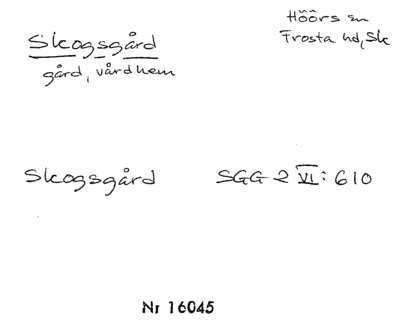 Skogsgård
gård, vårdhem
Höörs sn
Frosta hd, Sk
Skogsgård SGG 2 VI: 610
Nr 16045